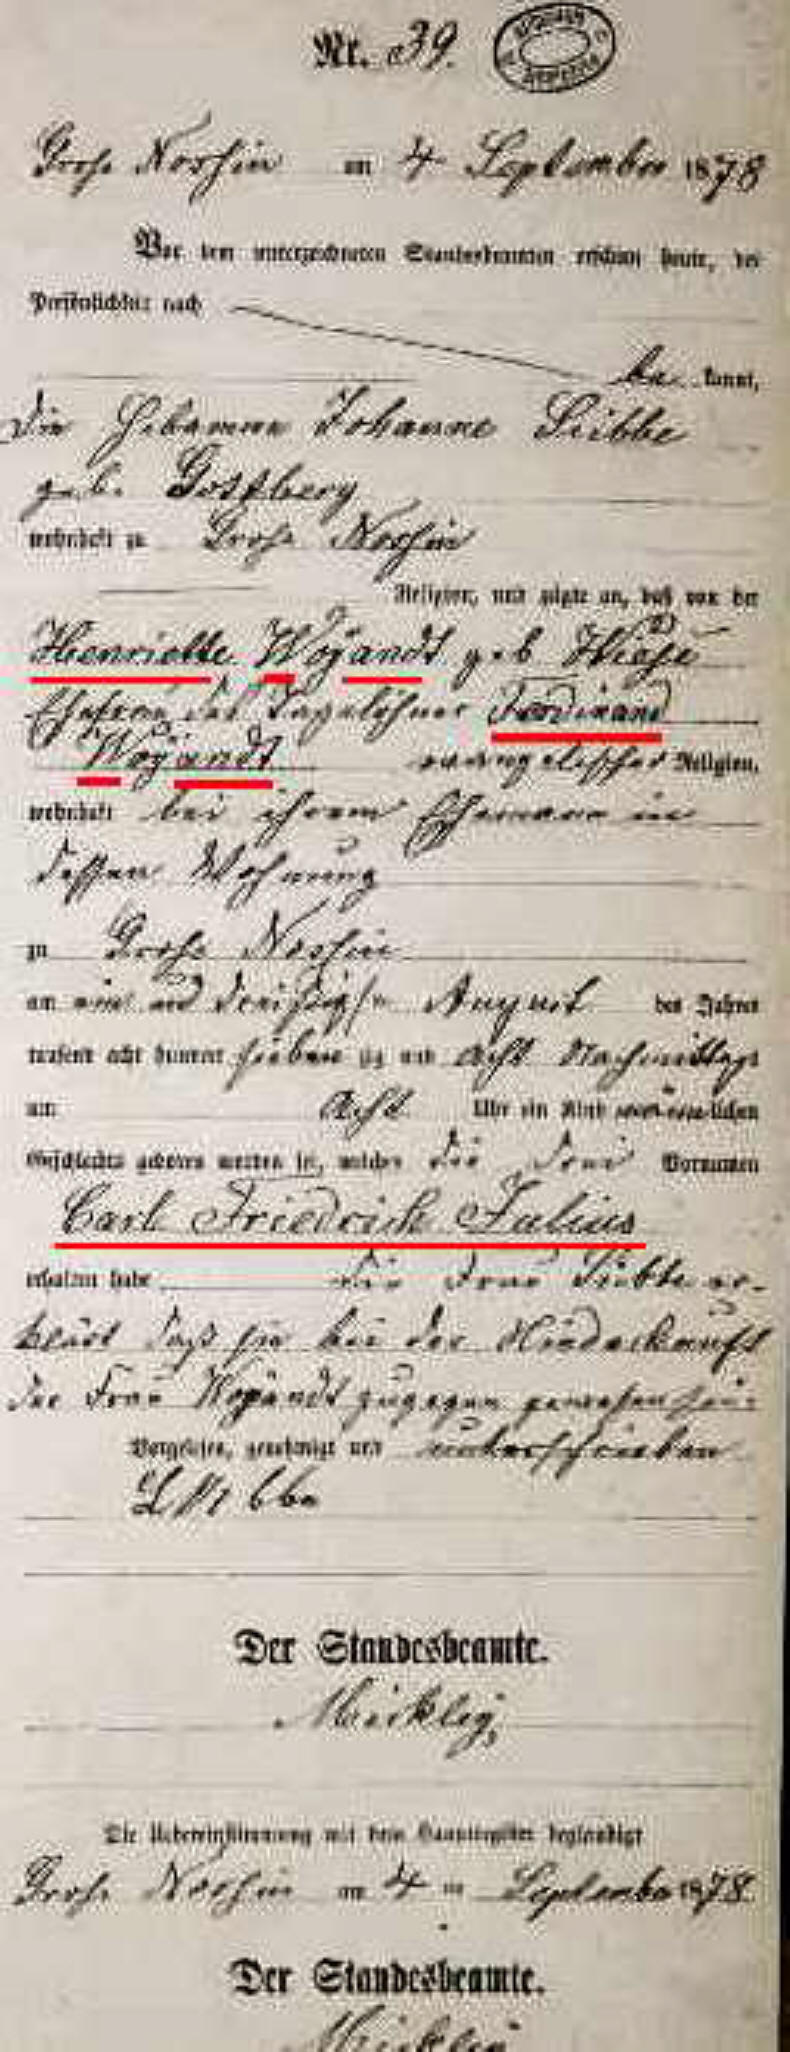 Nr. 39.
Groß Nossin am 4 September 1878
Vor dem unterzeichneten Standesbeamten erschien heute, der
Persönlichkeit nach
be kannt,
die Hebamme Johanne Libbe
geb. Gottberg
wohnhaft zu Groß Nossin
Religion, und zeigte an, daß von der
Henriette Woyandt geb Wiese
Ehefrau des Tagelöhner Ferdinand
Woyandt evangelischer Religion,
wohnhaft bei ihrem Ehemann in
dessen Wohnung
zu Groß Nossin
am ein und dreißigsten August des Jahres
tausend acht hundert sieben zig und acht Nachmittags
um acht Uhr ein Kind männlichen
Geschlechts geboren worden sei, welches die drei Vornamen
Carl Friedrich Julius
erhalten habe die Frau Libbe er-
klärt daß sie bei der Niederkunft
der Frau Woyandt zugegen gewesen sei.
Vorgelesen, genehmigt und unterschrieben
Der Standesbeamte.
Mickley,
Die Uebereinstimmung mit dem Hauptregister beglaubigt
Groß Nossin am 4 ten September 1878
Der Standesbeamte.
Mickley